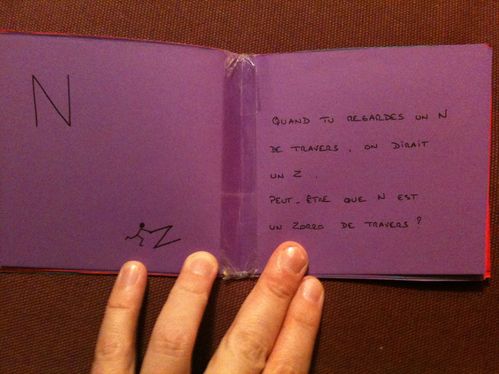 N
Z
QUAND TU REGARDES UN N
DE TRAVERS, ON DIRAIT
UN Z.
PEUT-ÊTRE QUE N EST
UN ZORRO DE TRAVERS ?